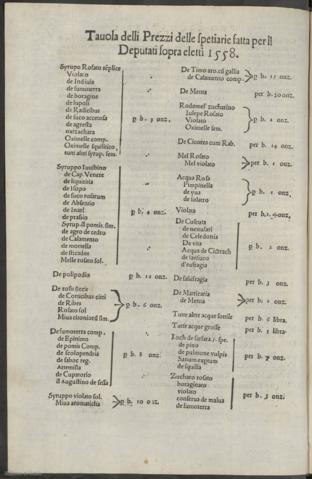 Tauola delli Prezzi delle spetiarie fatta per li
Deputati sopra eletti 1558.
Syrupo Rosato sēplice
Violato
de Indiuia
de fumoterra
de boragine
de lupoli
de Radicibus
de suco acetosa
de agresta
oxizachara
Oximelle comp.
Oximelle squilitico,
tutti altri syrup. sem.
p b. 3 onz.
Syruppo
de Cap. Venere
de liquiritia
de Hisopo
de suco rosarum
de Absentio
de
de prasio
Syrup. di pomis. sim.
de agro de cedro
de Calamento
de menta
de sticados
Melle rosato sol.
p b. 4 onz.
De polipodio
p b. 12 onz.
De
de Corticibus citri
de Ribes
Rosato sol
Miua citoniorū sim.
p b. 6 onz.
De fumoterre comp.
de Epitimo
de pomis Comp.
de scolopendria
de
Artemisia
de Eupatorio
p b. 8 onz.
Syruppo violato sol.
Miua aromaticha
p b. 10 onz.
De
de Calamento comp.
p b. 15 onz.
De Menta
per b. 20 onz.
Rodomel zucharino
Iulepe Rosato
Violato
Oximelle sem.
p b. 1 onz.
De Cicorea cum Rab.
per b. 14 onz.
Mel Rosato
Mel violato
per b. 1 onz.
Acqua Rosa
Pimpinella
de
de
p b. 1 onz.
Violata
De Cuscuta
de nenufari
de Celedonia
De vita
Acqua de
de
d'eufragia
p b. 2 onz.
De salsifragia
per b. 3 onz.
De Matricaria
de Menta
per b. 1 onz.
Tutte altre acque sottile
per b. 6 libra.
Tutte acque grosse
per b. 1 libra.
Loch de
de pino
de pulmone vulpis
Sanum expertum
de squilla
per b. 7 onz.
Zucharo rosato
boraginato
violato
conserua de malua
de fumoterra
per b. 3 onz.